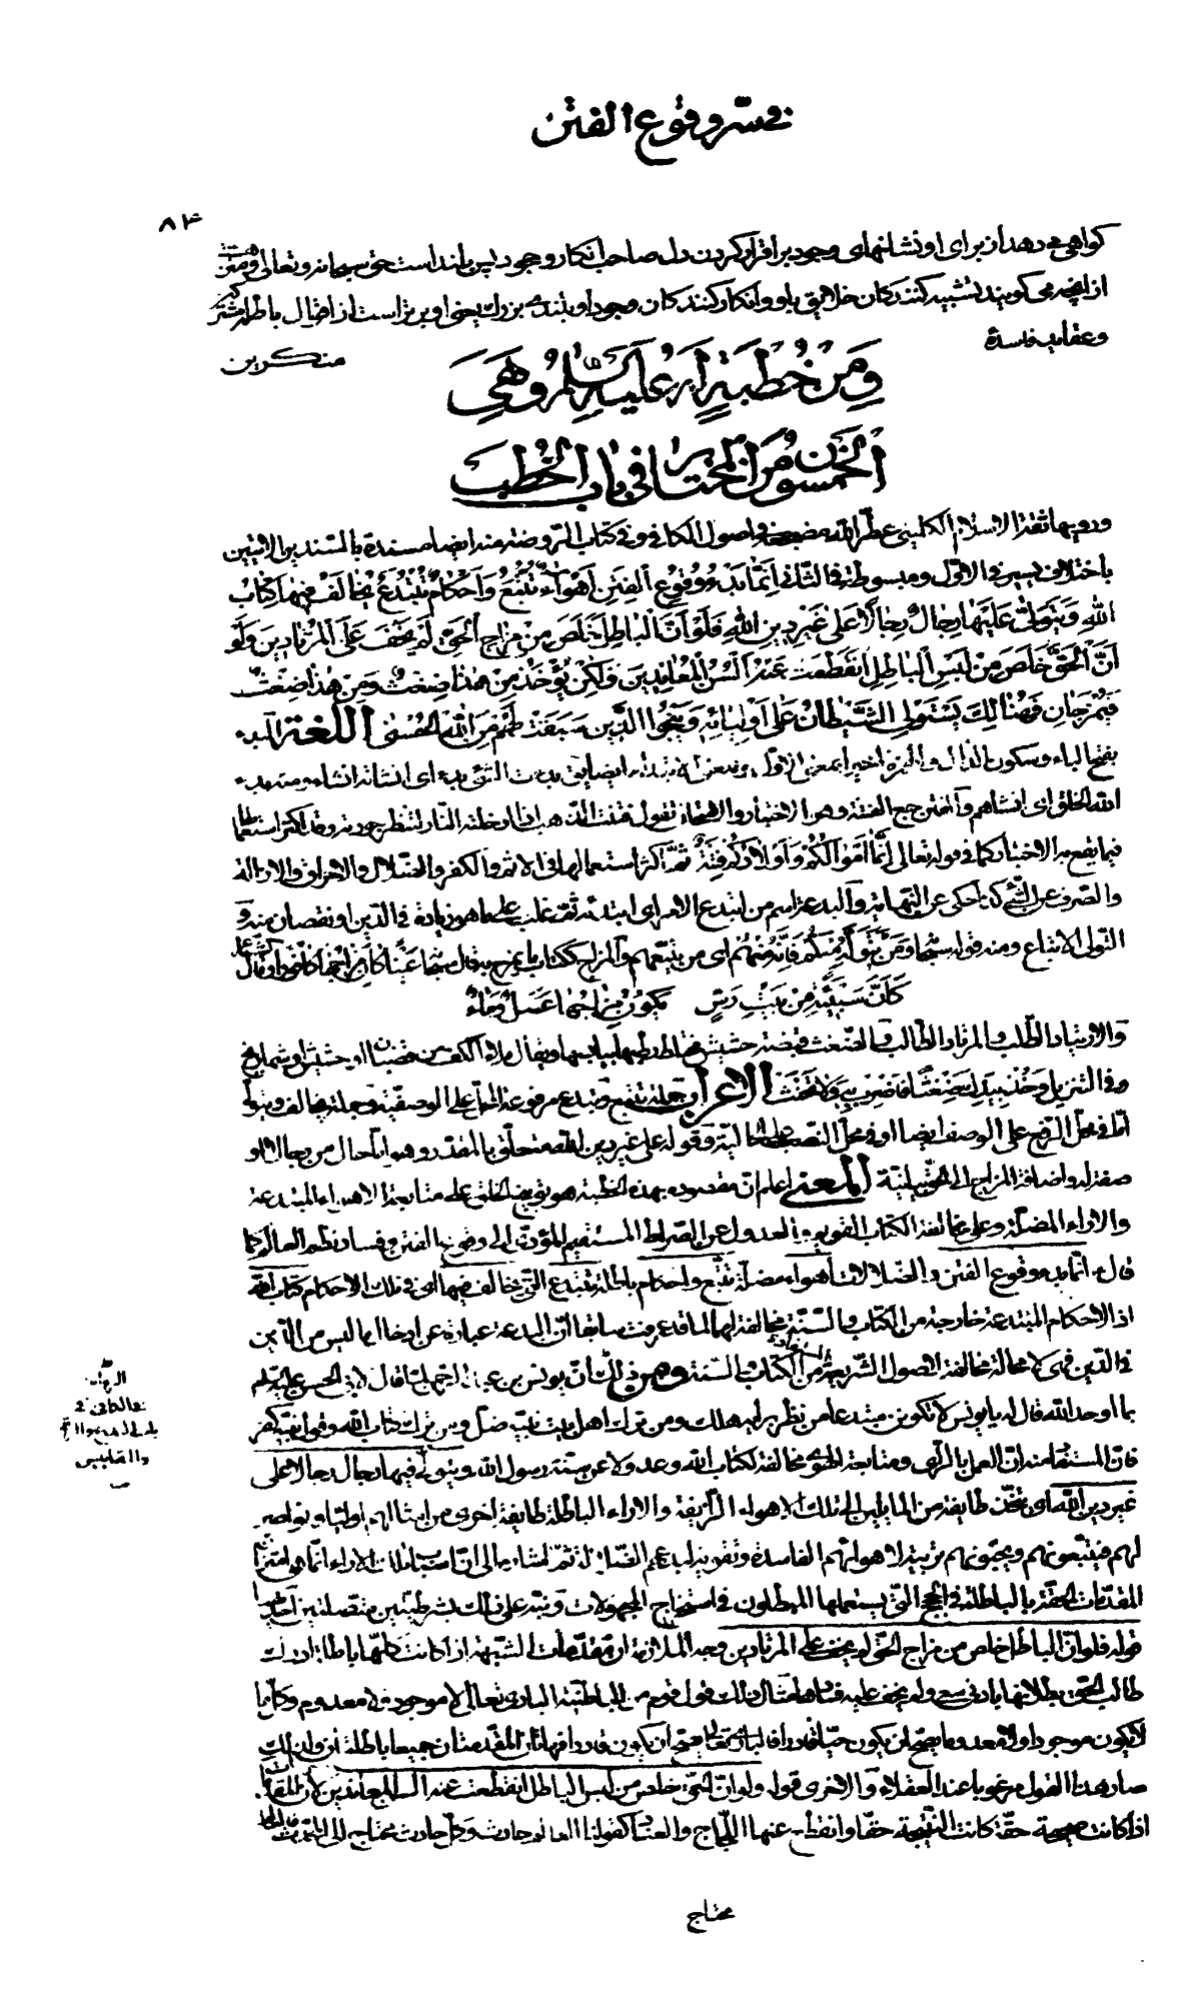 في سرّ وقوع الفتن
٨٣
كواهى مى دهد از براى او نشانهاى وجود بر اقرار كردن دل صاحب انكار وجود اين بلند است حق سبحانه وتعالى
از آنچه مى كويند تشبيه كنندكان خلايق باو وانكار كنندكان وجود او بلندى بزرك يعنى او برتر است از اقوال باطله
وعقايد فاسدة منكرين
وَمِنْ خُطْبَةٍ لَهُ عَلَيْهِ السَّلامُ وَهِيَ
الْخَمْسُونَ مِنَ الْمُخْتارِ في بابِ الْخُطَبِ
ورويها ثقة الاسلام الكليني عطّر الله مضجعه في اصول الكافي وفي كتاب الرّوضة منه ايضا مسندة بالسّندين الاتيين
باختلاف يسير في الاوّل ومبسوطة في الثّاني إِنَّما بَدْءُ وُقُوعِ الْفِتَنِ أَهْواءٌ تُتَّبَعُ وَأَحْكامٌ تُبْتَدَعُ يُخالَفُ فيها كِتابُ
اللهِ وَيَتَوَلّى عَلَيْها رِجالٌ رِجالًا عَلى غَيْرِ دينِ اللهِ فَلَوْ أَنَّ الْباطِلَ خَلَصَ مِنْ مِزاجِ الْحَقِّ لَمْ يَخْفَ عَلَى الْمُرْتادينَ وَلَوْ
أَنَّ الْحَقَّ خَلَصَ مِنْ لَبْسِ الْباطِلِ انْقَطَعَتْ عَنْهُ أَلْسُنُ الْمُعانِدينَ وَلكِنْ يُؤْخَذُ مِنْ هذا ضِغْثٌ وَمِنْ هذا ضِغْثٌ
فَيُمْزَجانِ فَهُنالِكَ يَسْتَوْلِي الشَّيْطانُ عَلى أَوْلِيائِهِ وَيَنْجُو الَّذينَ سَبَقَتْ لَهُمْ مِنَ اللهِ الْحُسْنى اللّغة البدء
بفتح الباء وسكون الدّال والهمزة اخيرا بمعنى الاوّل
الله الخلق اى انشاهم والفتن جمع الفتنة وهو الاختبار والامتحان تقول فتنت الذّهب اذا ادخلته النّار لتنظر جودته وقد اكثر استعمالها
فيما يقع به الاختبار كما في قوله تعالى إنَّما أَمْوالُكُمْ وَأَوْلادُكُمْ فِتْنَةٌ ثمّ اكثر استعمالها في الاثم والكفر والضّلال والاحراق والازالة
والصّرف عن الشّيء كذا حكى عن النّهاية والبدعة اسم من ابتدع الامر اى ابتدئه ثمّ غلب على ما هو زيادة في الدّين او نقصان منه و
التّولى الاتّباع ومنه قوله سبحانه وَمَنْ يَتَوَلَّهُمْ مِنْكُمْ فَإنَّهُ مِنْهُمْ اى من يتّبعهم والمزاج ككتاب ما يمزج به قال سبحانه عَيْنًا كانَ مِزاجُها كافُورًا وقال
كَأَنَّ سَبيئَةً مِنْ بَيْتِ رَأْسٍ يَكُونُ مِزاجُها عَسَلٌ وَماءٌ
والارتياد الطّلب والمرتاد الطّالب والضّغث قبضة حشيش مختلط رطبها بيابسها ويقال ملاء الكفّ من قضبان او حشيش او شماريخ
وفي التنزيل وَخُذْ بِيَدِكَ ضِغْثًا فَاضْرِبْ بِهِ وَلا تَحْنَثْ الاعراب جملة تتّبع وتبتدع مرفوعة المحلّ على الوصفيّة وجملة يخالف فيها
امّا في محلّ الرّفع على الوصف ايضا او في محلّ النّصب على الحاليّة وقوله على غير دين الله متعلّق بالمقدّر وهو امّا حال من رجال او
صفة له واضافة المزاج الى الحقّ بيانيّة المعنى اعلم انّ مقصوده بهذه الخطبة هو توبيخ الخلق على متابعة الاهواء المبتدعة
والاراء المضلّة وعلى مخالفة الكتاب القويم والعدول عن الصّراط المستقيم المؤدّى الى وقوع الفتن وفساد نظم العالم كما
قال انّما بدء وقوع الفتن والضّلالات أهواء مضلّة تتّبع واحكام باطلة تبتدع الّتي يخالف فيها اى في تلك الاحكام كتاب الله
اذ الاحكام المبتدعة خارجة من الكتاب والسّنّة مخالفة لهما لما قد عرفت سابقا انّ البدعة عبارة عن ادخال ما ليس من الدّين
في الدّين فهى لا محالة مخالفة لاصول الشّريعة من الكتاب والسّنة ومن ذلك انّ يونس بن عبد الرّحمن لمّا قال لابى الحسن عليه السّلام
بما اوحد الله قال له يا يونس لا تكونن مبتدعا من نظر برأيه هلك ومن ترك اهل بيت نبيّه ضلّ ومن ترك كتاب الله وقول نبيّه كفر
فانّ المستفاد منه انّ العمل بالرّأى ومتابعة الهوى مخالفة لكتاب الله وعدول عن سنّة رسول الله ويتولّى فيها رجال رجالا على
غير دين الله اى يتّخذ طايفة من المايلين الى تلك الاهواء الزّايفة والاراء الباطلة طايفة اخرى من امثالهم اولياء ونواصر
لهم فيتّبعونهم ويحبّونهم تربية لاهوائهم الفاسدة وتقوية لبدعهم الضّالة ثمّ اشار الى انّ اسباب تلك الاراء انّما هو امتزاج
المقدّمات الحقّة بالباطلة في الحجج الّتي يستعملها المبطلون في استخراج المجهولات ونبّه على ذلك بشرطيّتين متّصلتين احديهما
قوله فلو انّ الباطل خلص من مزاج الحقّ لم يخف على المرتادين وجه الملازمة انّ مقدّمات الشّبهة اذا كانت كلّها باطلة ادرك
طالب الحقّ بطلانها بادنى سعى ولم يخف عليه فسادها مثال ذلك قول قوم من الباطنيّة البارى تعالى لا موجود ولا معدوم وكلّ ما
لا يكون موجودا ولا معدوما يصحّ ان يكون حيّا قادرا فالبارى تعالى يصحّ ان يكون حيّا قادرا فهاتان المقدّمتان جميعا باطلة
صار هذا القول مرغوبا عند العقلاء والاخرى قوله ولو انّ الحقّ خلص من لبس الباطل انقطعت عنه السن المعاندين لانّ المقدّمات
اذا كانت صحيحة حقّة كانت النّتيجة حقّا وانقطع عنها اللّجاج والعناد كقولنا العالم حادث وكلّ حادث محتاج الى المحدث
محتاج